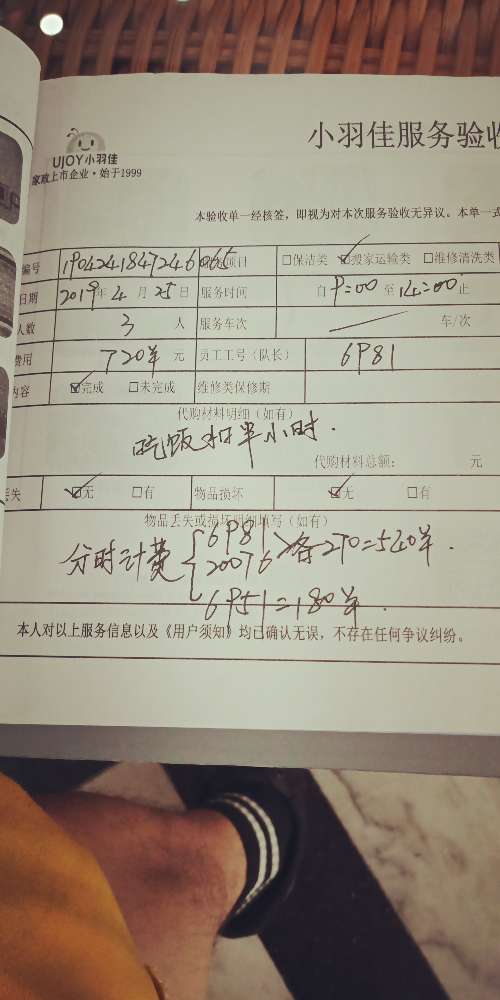 小羽佳服务验收
UJOY小羽佳
家政上市企业·始于1999
本验收单一经核签，即视为对本次服务验收无异议。本单一式
编号 1904241847246065 项目 □保洁类 ☑搬家运输类 □维修清洗类
日期 2019年4月25日 服务时间 自9:00至14:00止
人数 3 人 服务车次 / 车/次
费用 720¥ 元 员工工号（队长） 6981
内容 ☑完成 □未完成 维修类保修期
代购材料明细（如有）
吃饭扣半小时.
代购材料总额： 元
丢失 ☑无 □有 物品损坏 ☑无 □有
物品丢失或损坏明细填写（如有）
分时计费 6981
20076 各270=540¥.
6951=180¥.
本人对以上服务信息以及《用户须知》均已确认无误，不存在任何争议纠纷。